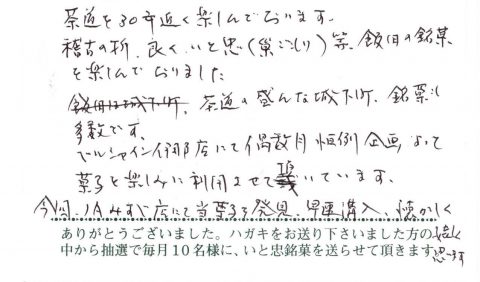 茶道を30年近く楽しんでおります。
稽古の折、良くいと忠(巣ごもり)等、飯田の銘菓
を楽しんでおりました
飯田は城下町、茶道の盛んな城下町、銘菓も
多数です。
ベルシャイン伊那店にて偶数月恒例企画、よって
菓子を楽しみに利用させて頂いています。
今回、JAみすず店にて当菓子を発見、早速購入、懐かしく
嬉しく
思います
ありがとうございました。ハガキをお送り下さいました方の
中から抽選で毎月10名様に、いと忠銘菓を送らせて頂きます